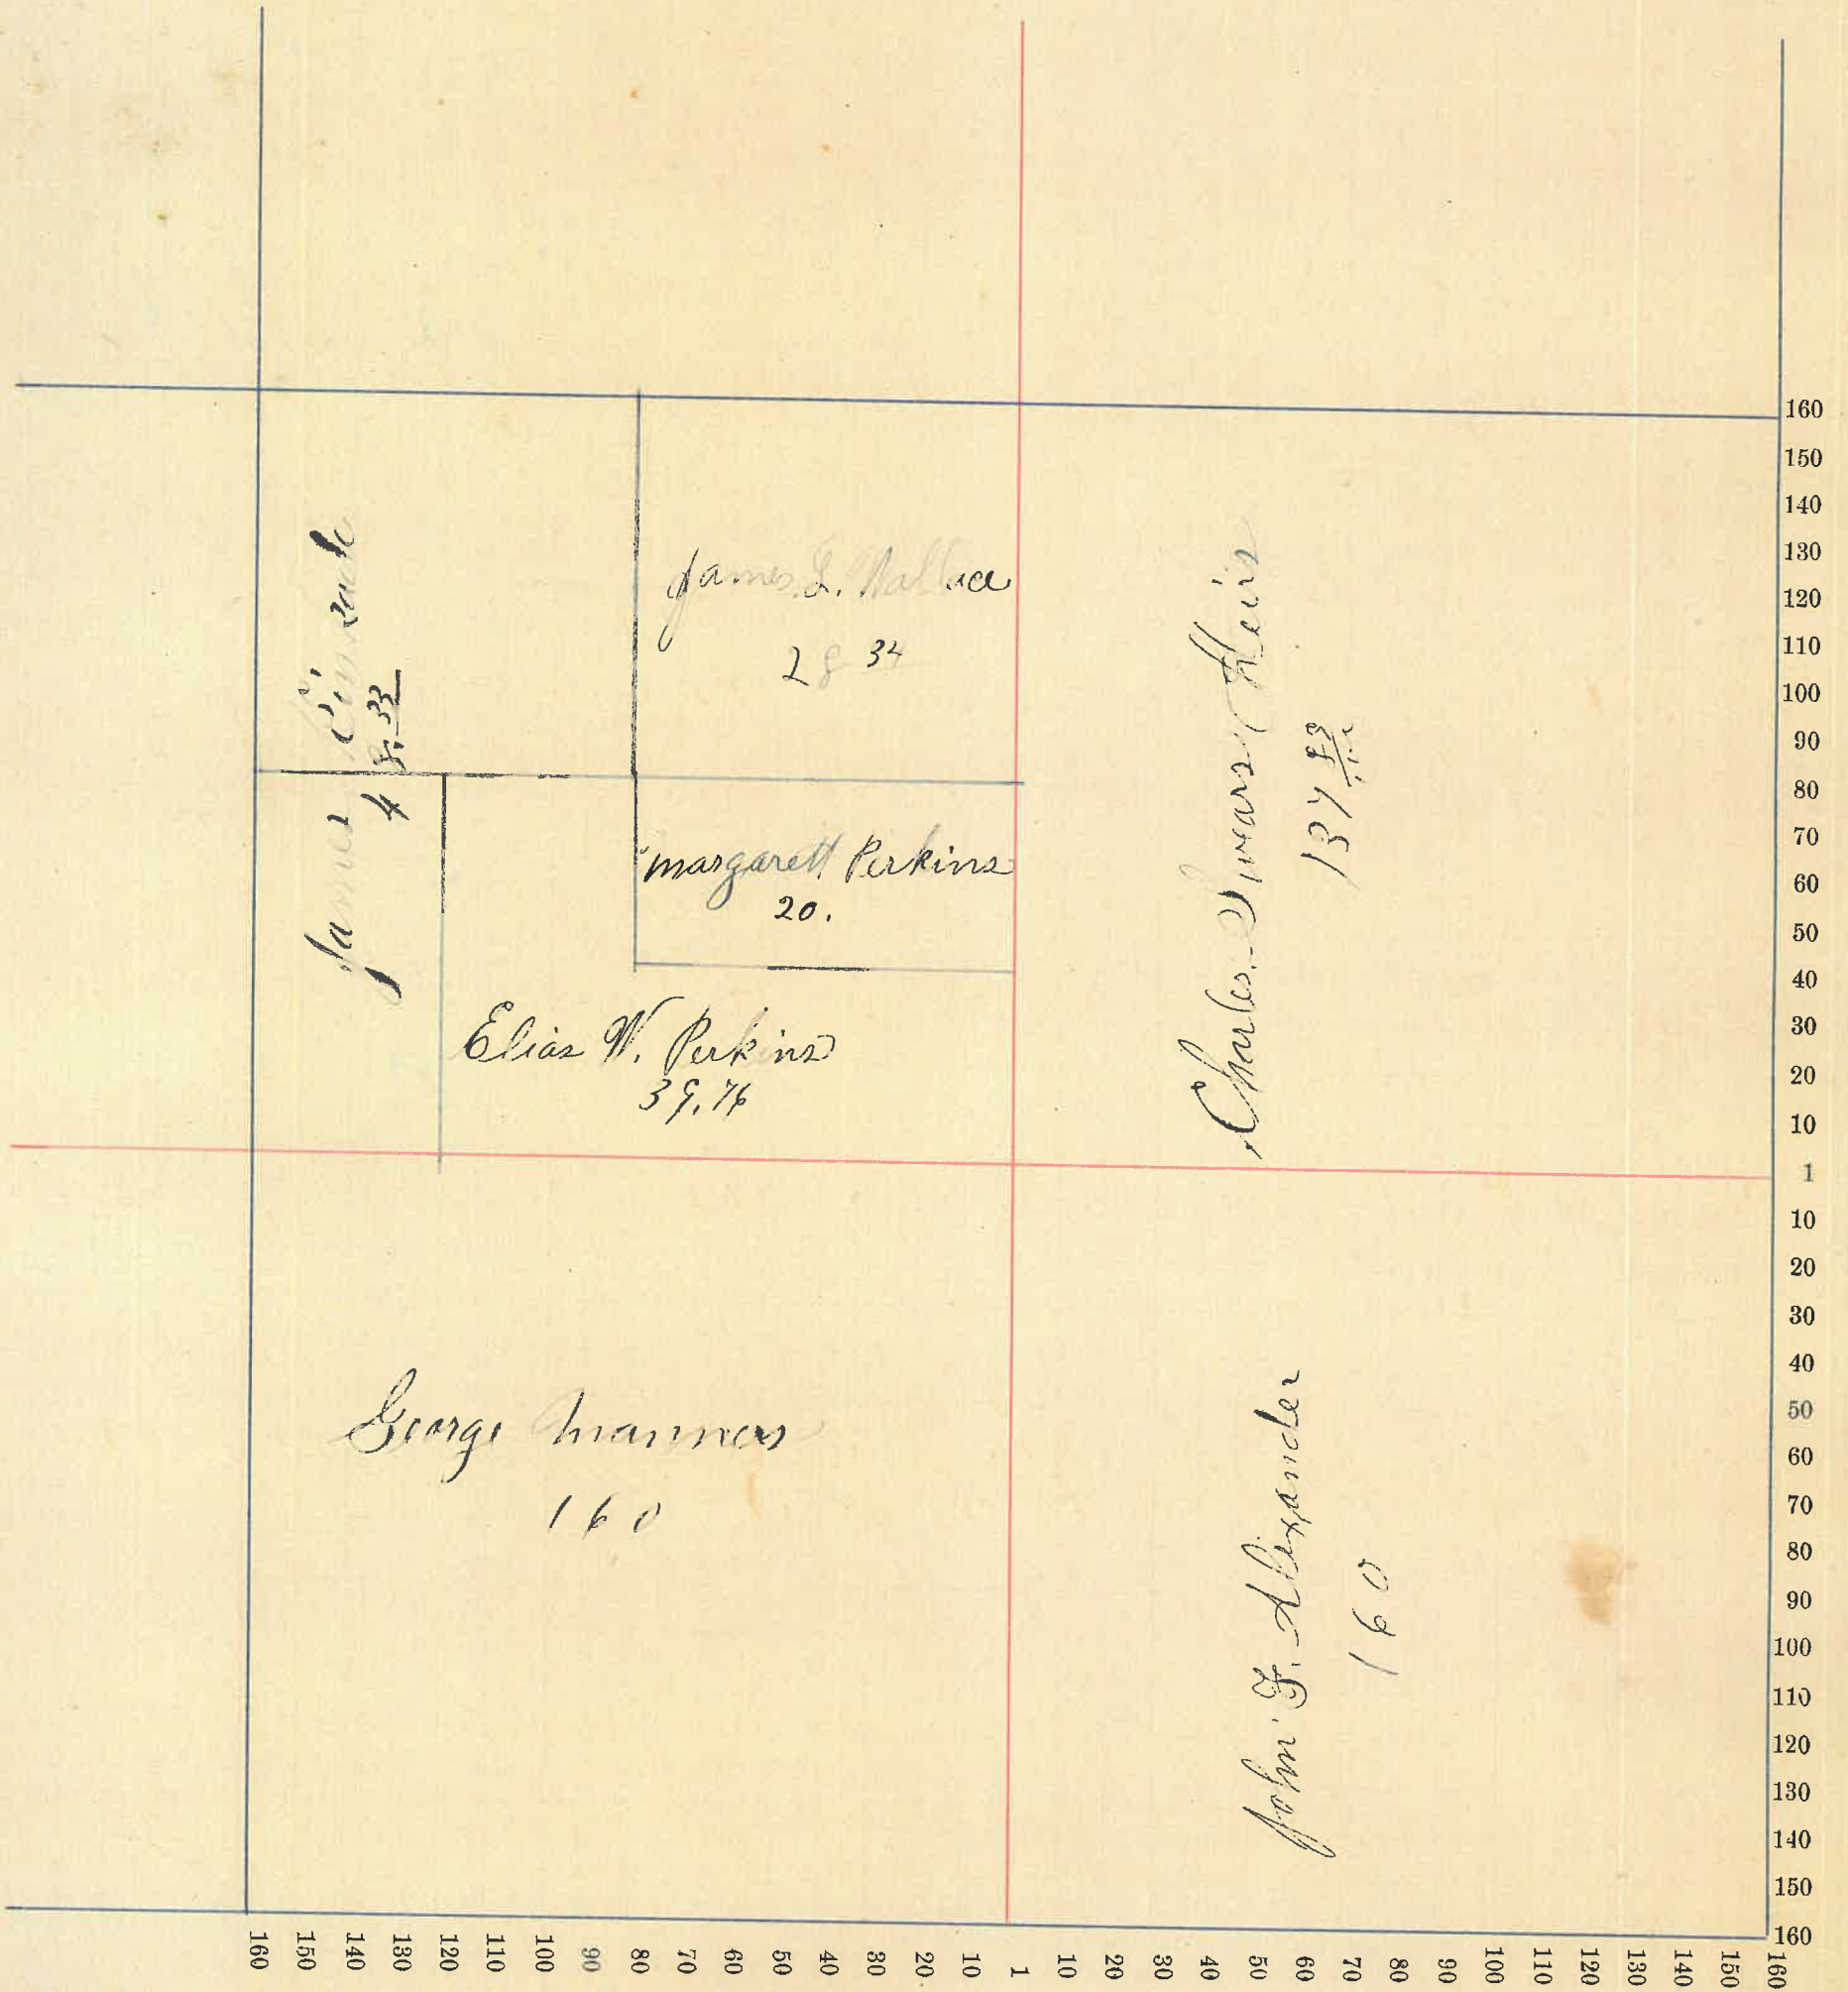 James L. Wallace
28 34
James
48.33
margarett Perkins
20.
Elias W. Perkins
39.76
Charles Heirs
137
George Manners
160
John F. Alexander
160
160
150
140
130
120
110
100
90
80
70
60
50
40
30
20
10
1
10
20
30
40
50
60
70
80
90
100
110
120
130
140
150
160
160 150 140 130 120 110 100 90 80 70 60 50 40 30 20 10 1 10 20 30 40 50 60 70 80 90 100 110 120 130 140 150 160